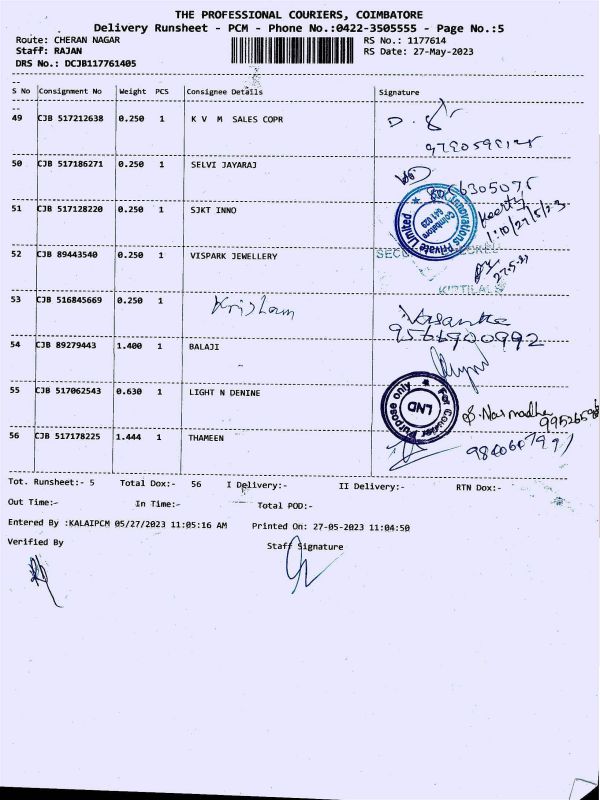 THE PROFESSIONAL COURIERS, COIMBATORE
Delivery Runsheet - PCM - Phone No.:0422-3505555 - Page No.:5
Route: CHERAN NAGAR RS No.: 1177614
Staff: RAJAN RS Date: 27-May-2023
DRS No.: DCJB117761405
S No Consignment No Weight PCS Consignee Details Signature
49 CJB 517212638 0.250 1 K V M SALES COPR
50 CJB 517186271 0.250 1 SELVI JAYARAJ
51 CJB 517128220 0.250 1 SJKT INNO
Innovations Private Limited
Coimbatore
641 029
1:10/27/5/23
52 CJB 89443540 0.250 1 VISPARK JEWELLERY
27-5-23
KIRTILALS
53 CJB 516845669 0.250 1 Krisham
Vasantha
9566900992
54 CJB 89279443 1.400 1 BALAJI
55 CJB 517062543 0.630 1 LIGHT N DENINE
For Courier Purpose only
LND
S. Narmadha
56 CJB 517178225 1.444 1 THAMEEN
Tot. Runsheet:- 5 Total Dox:- 56 I Delivery:- II Delivery:- RTN Dox:-
Out Time:- In Time:- Total POD:-
Entered By :KALAIPCM 05/27/2023 11:05:16 AM Printed On: 27-05-2023 11:04:50
Verified By Staff Signature